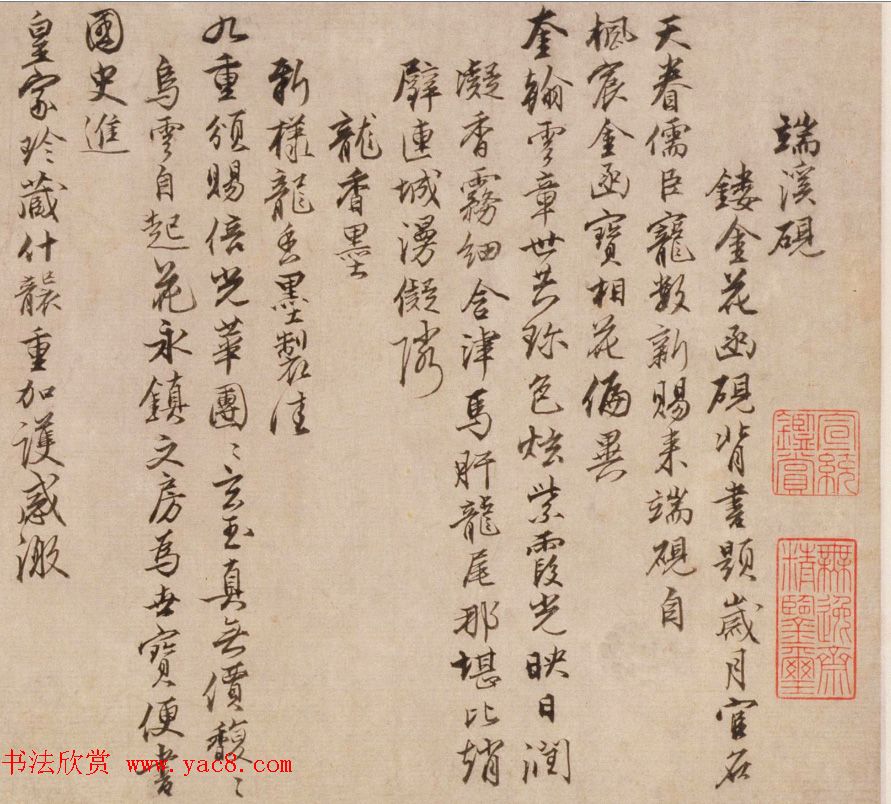 端溪硯
鏤金花函硯背書題歲月官名
天眷儒臣寵數新賜来端硯自
楓宸金函寶相花偏異
奎翰雲章世共珎色炫紫霞光映日潤
凝香霧細含津馬肝龍尾那堪比趙
璧連城漫儗隣
龍香墨
新樣龍香墨製佳
九重頒賜倍光華團〻玄玉真無價馥〻
烏雲自起花永鎮文房為世寶便書
國史進
皇家珎藏什襲重加護感激
宣統鑑賞
無逸齋精鑒璽
书法欣赏 www.yac8.com